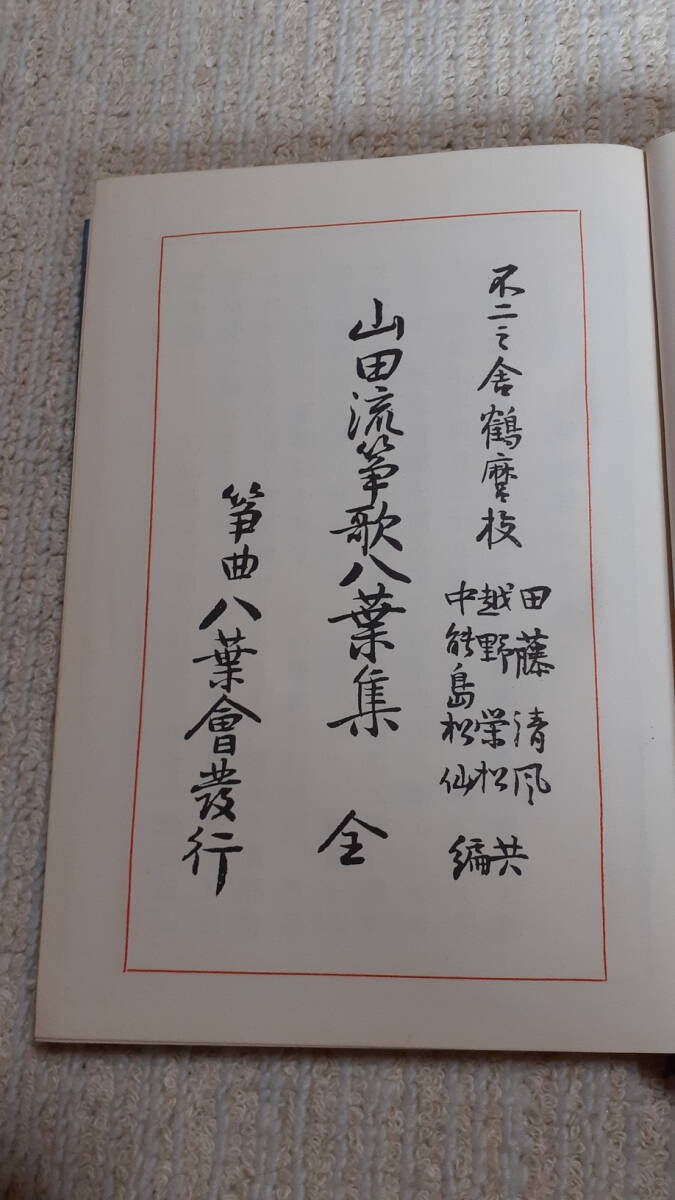 不二之舎鶴麿校
田藤清風
越野栄松
中能島松仙
共編
山田流箏歌八葉集 全
箏曲八葉會發行